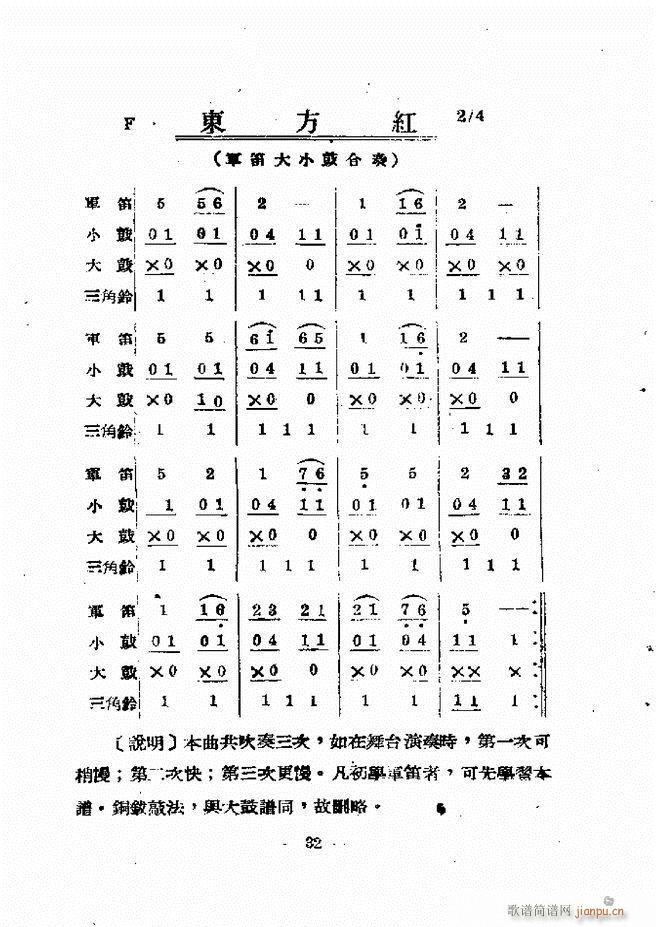 F 東方紅 2/4
（軍笛大小鼓合奏）
軍笛 5 56 | 2 — | 1 16 | 2 —
小鼓 01 01 | 04 11 | 01 01 | 04 11
大鼓 ×0 ×0 | ×0 0 | ×0 ×0 | ×0 ×0
三角鈴 1 1 | 1 11 | 1 1 | 1 1 1
軍笛 5 5 | 61 65 | 1 16 | 2 —
小鼓 01 01 | 04 11 | 01 01 | 04 11
大鼓 ×0 10 | ×0 0 | ×0 ×0 | ×0 0
三角鈴 1 1 | 1 1 1 | 1 1 | 1 1 1
軍笛 5 2 | 1 76 | 5 5 | 2 32
小鼓 1 01 | 04 11 | 01 01 | 04 11
大鼓 ×0 ×0 | ×0 0 | ×0 ×0 | ×0 0
三角鈴 1 1 | 1 1 1 | 1 1 | 1 1 1
軍笛 1 16 | 23 21 | 21 76 | 5 —
小鼓 01 01 | 04 11 | 01 04 | 11 1
大鼓 ×0 ×0 | ×0 0 | ×0 ×0 | ×× ×
三角鈴 1 1 | 1 1 1 | 1 1 | 11 1
〔說明〕本曲共吹奏三次，如在舞台演奏時，第一次可
稍慢；第二次快；第三次更慢。凡初學軍笛者，可先學習本
譜。銅鈸敲法，與大鼓譜同，故刪略。
32
歌谱简谱网 jianpu.cn